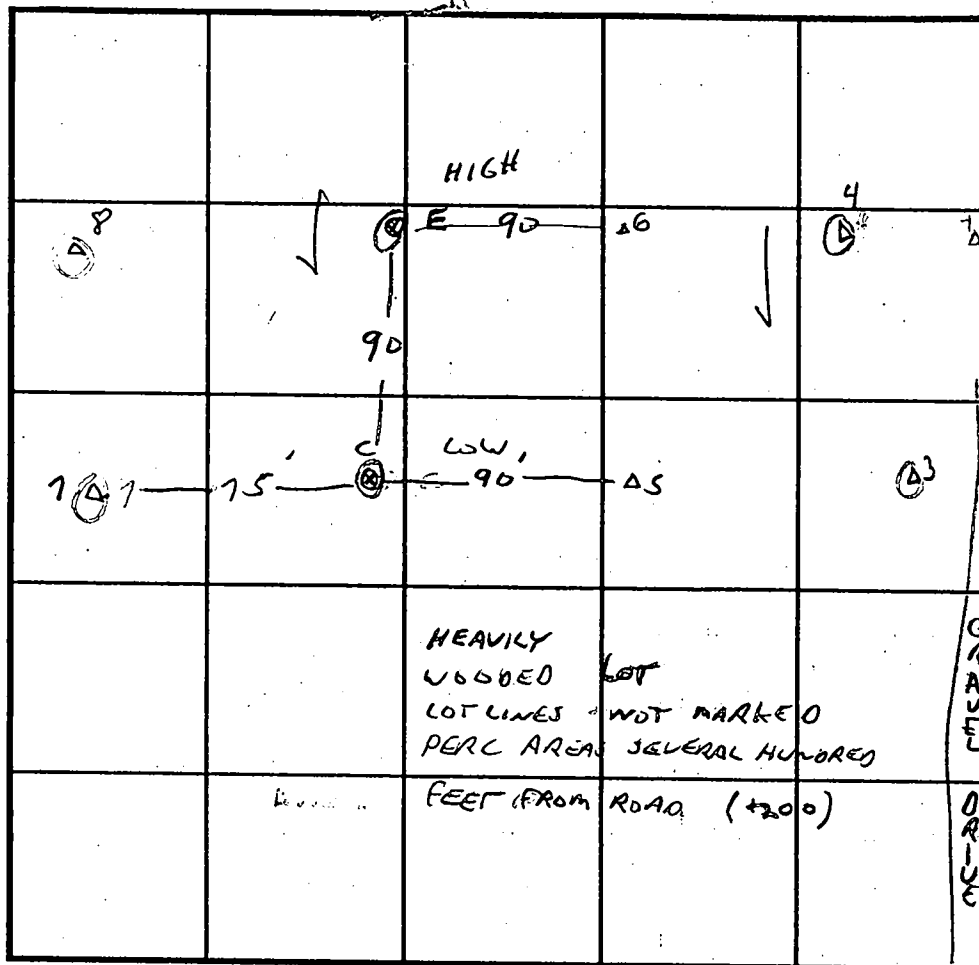 HIGH
8
E 90 △6
4
90
C LOW
1 75' 90 △5
△3
HEAVILY
WOODED LOT
LOT LINES NOT MARKED
PERC AREAS SEVERAL HUNDRED
FEET FROM ROAD (+200)
GRAVEL DRIVE